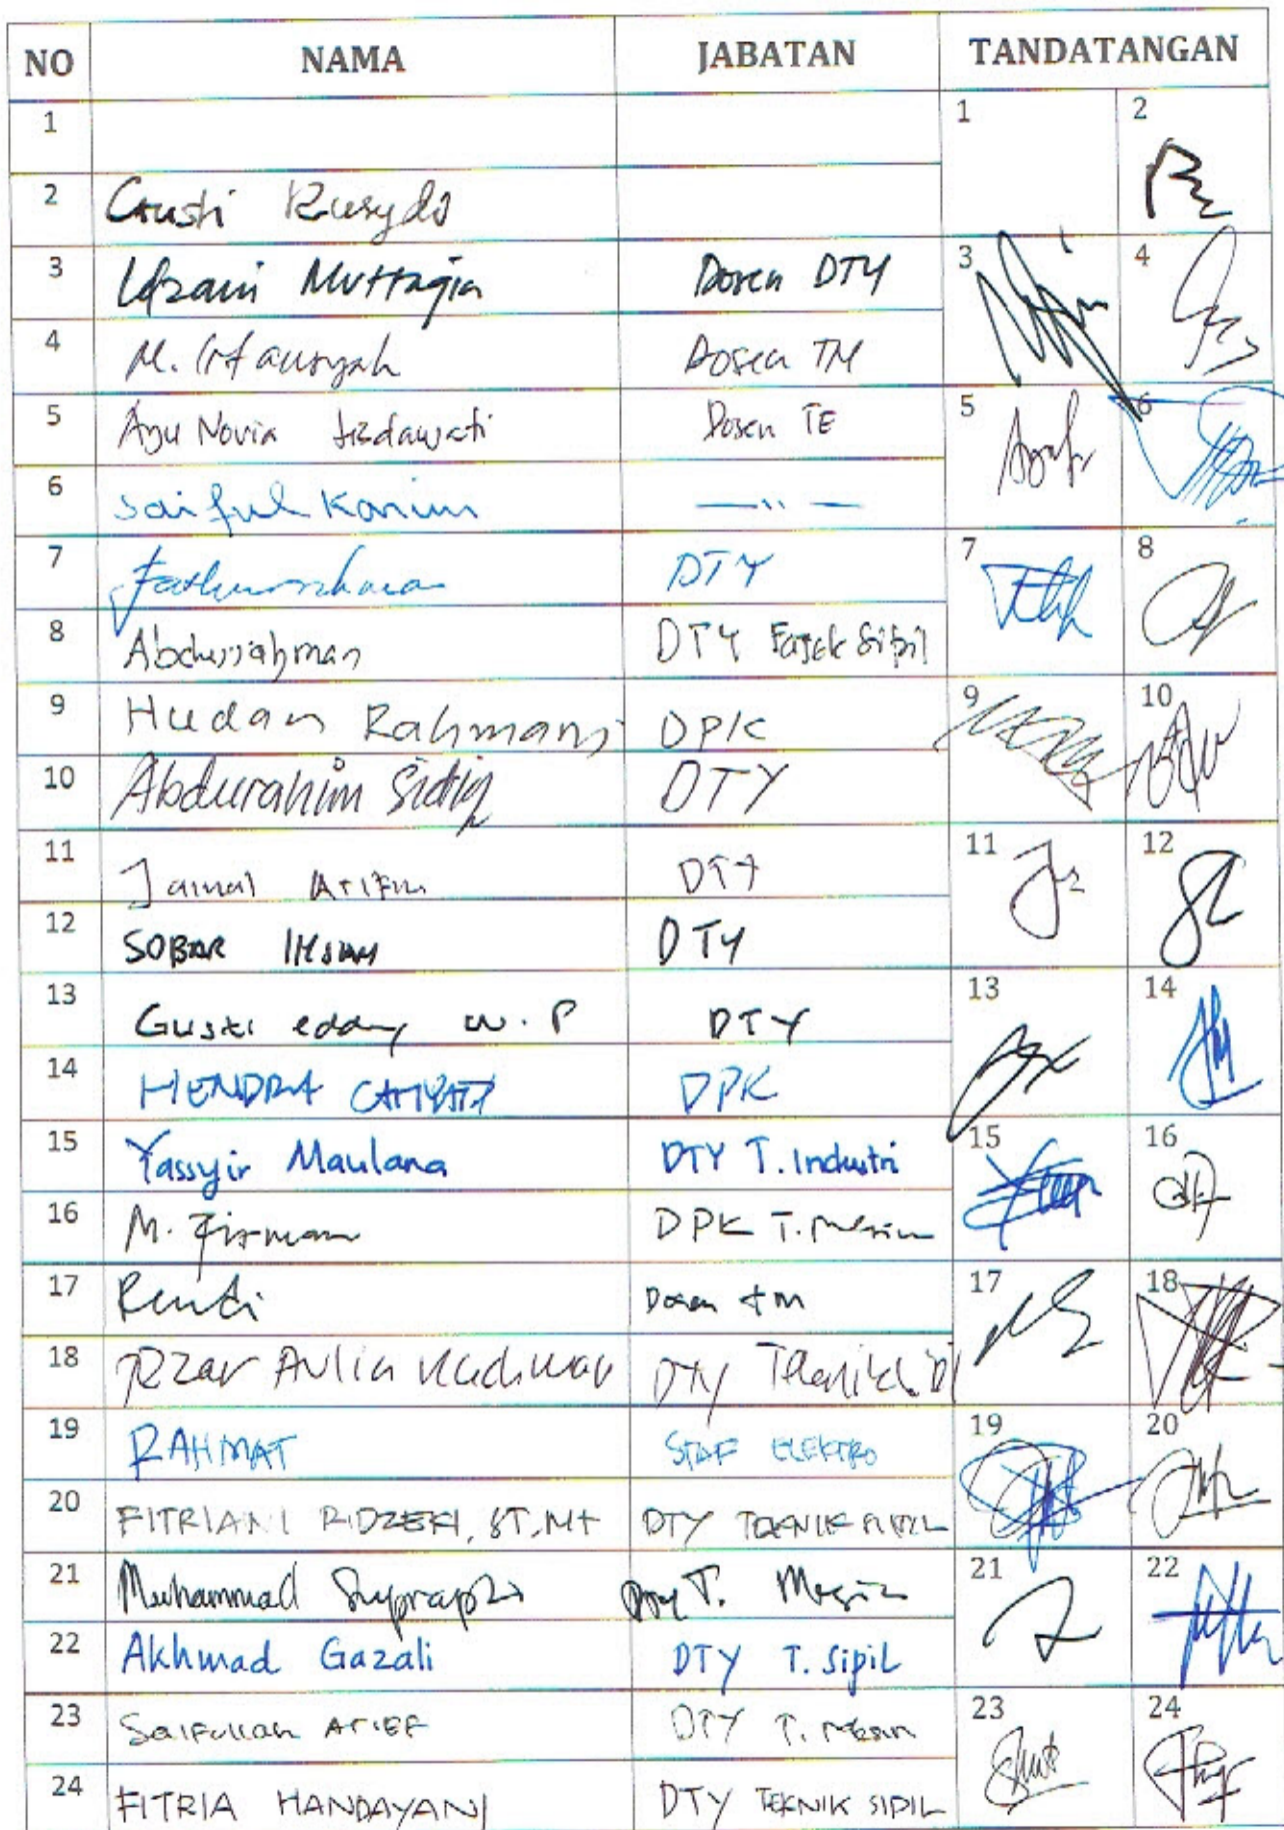 NO NAMA JABATAN TANDATANGAN
1 1 2
2 Gusti Rusydi
3 Idzani Muttaqin Dosen DTY 3 4
4 M. Irfansyah Dosen TM
5 Ayu Novia Dosen TE 5 6
6 Saiful Karim —"—
7 Fathurrahman DTY 7 8
8 Abdurrahman DTY Fatek Sipil
9 Hudan Rahmani DPK 9 10
10 Abdurahim Sidiq DTY
11 Jainal Arifin DTY 11 12
12 SOBAR IHSAN DTY
13 Gusti eddy w. P DTY 13 14
14 HENDRA DPK
15 Yassyir Maulana DTY T. Industri 15 16
16 M. Firman DPK T. Mesin
17 Rendi Dosen tm 17 18
18 Aulia DTY
19 RAHMAT STAF ELEKTRO 19 20
20 FITRIANI RIDZEKI, ST, MT DTY TEKNIK SIPIL
21 Muhammad Suprapto DTY T. Mesin 21 22
22 Akhmad Gazali DTY T. Sipil
23 Saifullah ARIEF DTY T. Mesin 23 24
24 FITRIA HANDAYANI DTY TEKNIK SIPIL